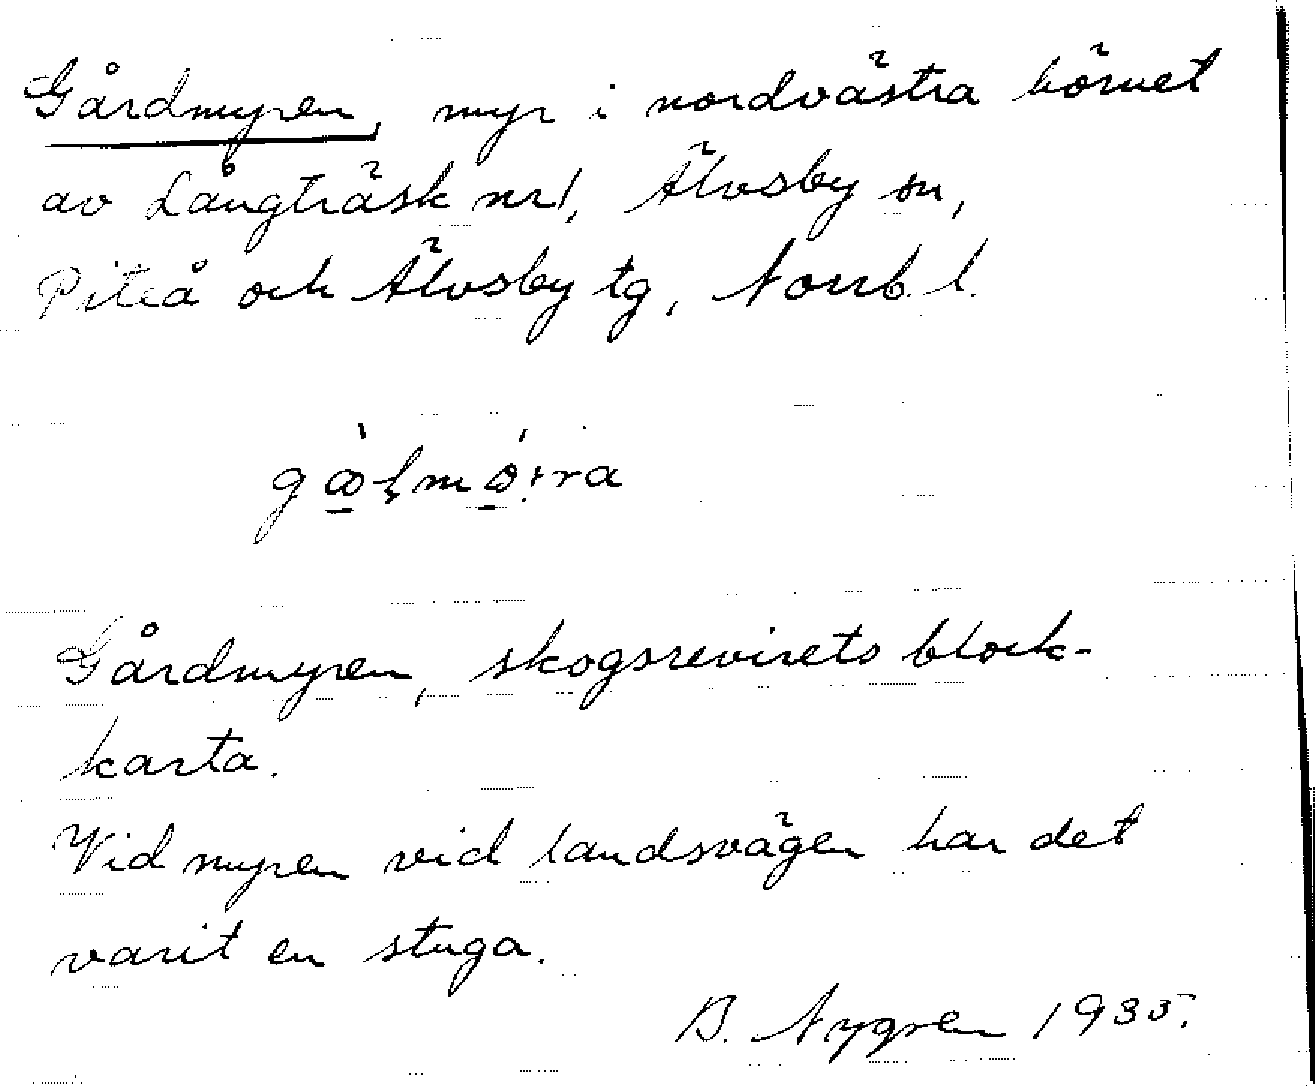 Gårdmyren, myr i nordvästra hörnet
av Långträsk nr 1, Älvsby sn,
Piteå och Älvsby tg, Norrb. l.
Gårdmyren, skogsrevirets block-
karta.
Vid myren vid landsvägen har det
varit en stuga.
B. Nygren 1935.